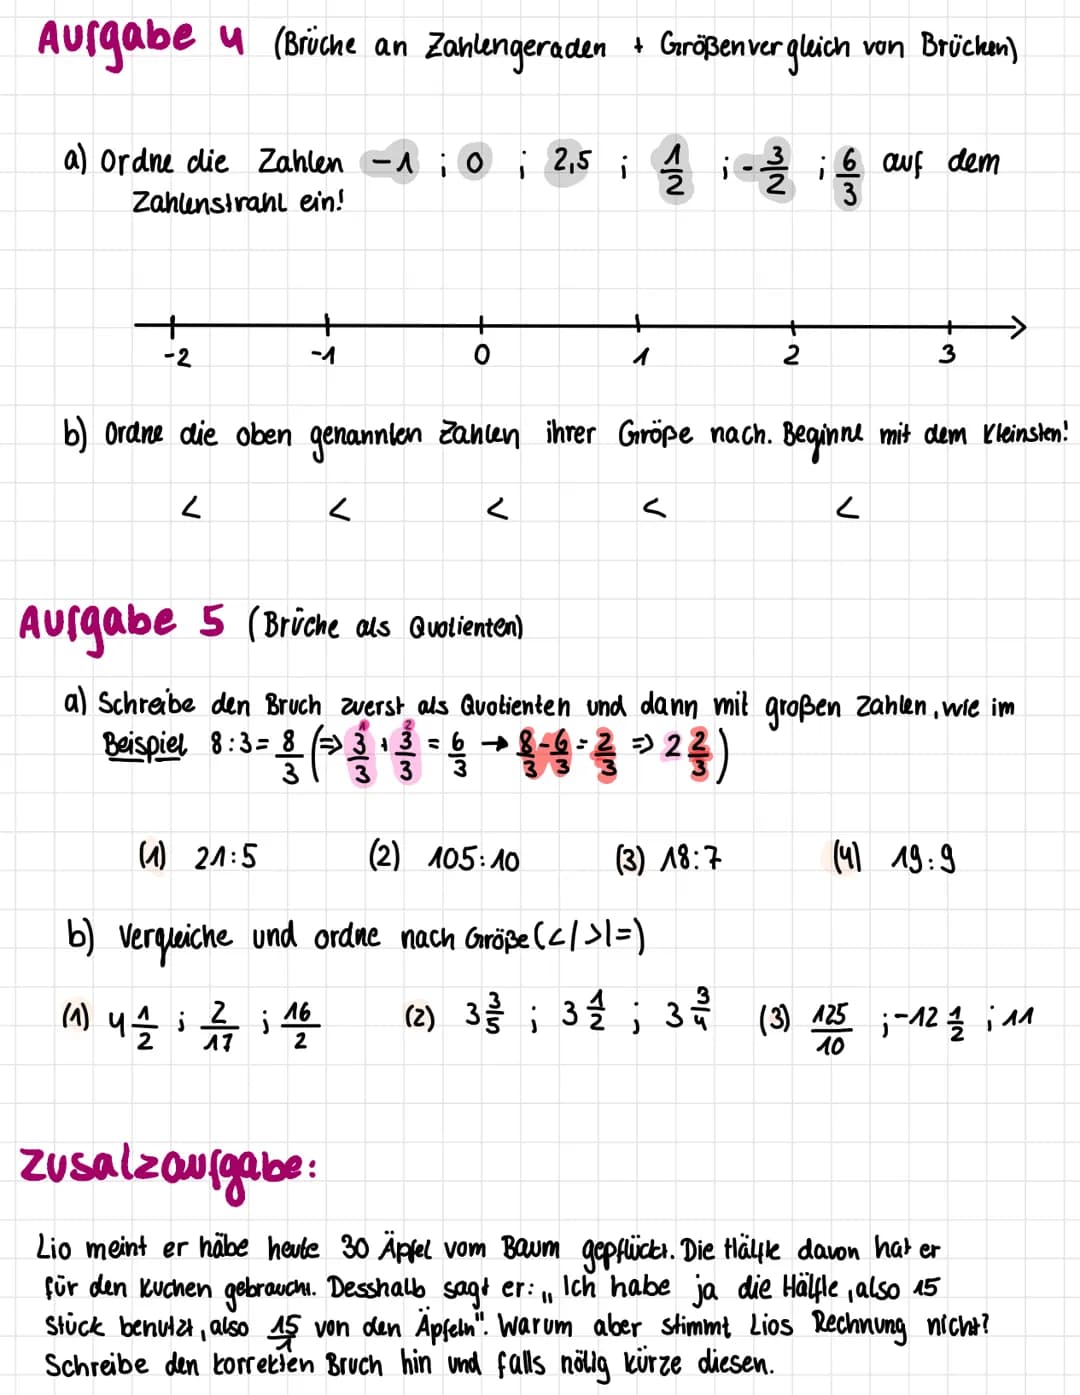 Aufgabe 4 (Brüche an Zahlengeraden + Größenvergleich von Brücken)
a) Ordne die Zahlen -1 ; 0 ; 2,5 ; 1/2 ; -3/2 ; 6/3 auf dem
Zahlenstrahl ein!
-2 -1 0 1 2 3
b) Ordne die oben genannten Zahlen ihrer Größe nach. Beginne mit dem Kleinsten!
< < < < <
Aufgabe 5 (Brüche als Quotienten)
a) Schreibe den Bruch zuerst als Quotienten und dann mit großen Zahlen, wie im
Beispiel 8:3 = 8/3 (⇒ 1 3/3 + 2 3/3 = 6/3 → 8/3 - 6/3 = 2/3 ⇒ 2 2/3)
(1) 21:5 (2) 105:10 (3) 18:7 (4) 19:9
b) Vergleiche und ordne nach Größe (</>/=)
(1) 4 1/2 ; 2/17 ; 16/2 (2) 3 3/5 ; 3 1/2 ; 3 3/4 (3) 125/10 ; -12 1/2 ; 11
Zusatzaufgabe:
Lio meint er häbe heute 30 Äpfel vom Baum gepflückt. Die Hälfte davon hat er
für den Kuchen gebraucht. Desshalb sagt er: „Ich habe ja die Hälfte, also 15
Stück benutzt, also 15/1 von den Äpfeln". Warum aber stimmt Lios Rechnung nicht?
Schreibe den korrekten Bruch hin und falls nötig kürze diesen.